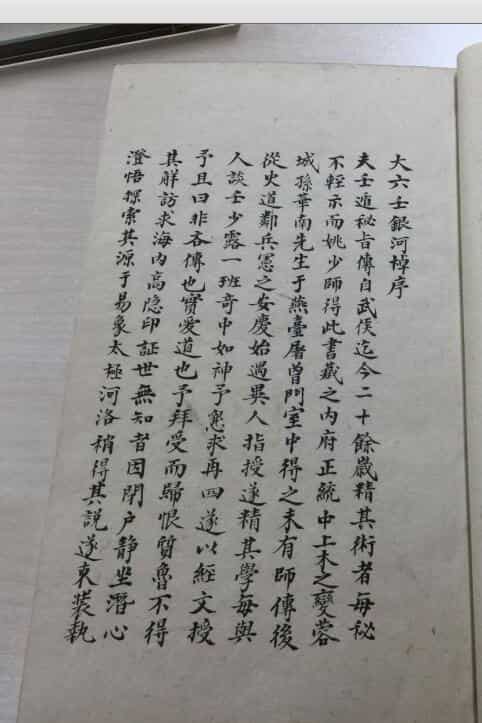 大六壬銀河棹序
夫壬遁秘旨傳自武侯迄今二十餘歲精其術者每秘
不輕示而姚少師得此書藏之内府正統中土木之變蓉
城孫華南先生于燕臺屠曽門室中得之未有師傳後
從火道鄰兵憲之安慶始遇異人指授遂精其學每與
人談壬少露一班奇中如神予懇求再四遂以經文授
予且曰非吝傳也寳愛道也予拜受而歸恨質魯不得
其解訪求海内高隐印証世無知者因閉户静坐潛心
澄悟探索其源于易象太極河洛稍得其說遂束装執